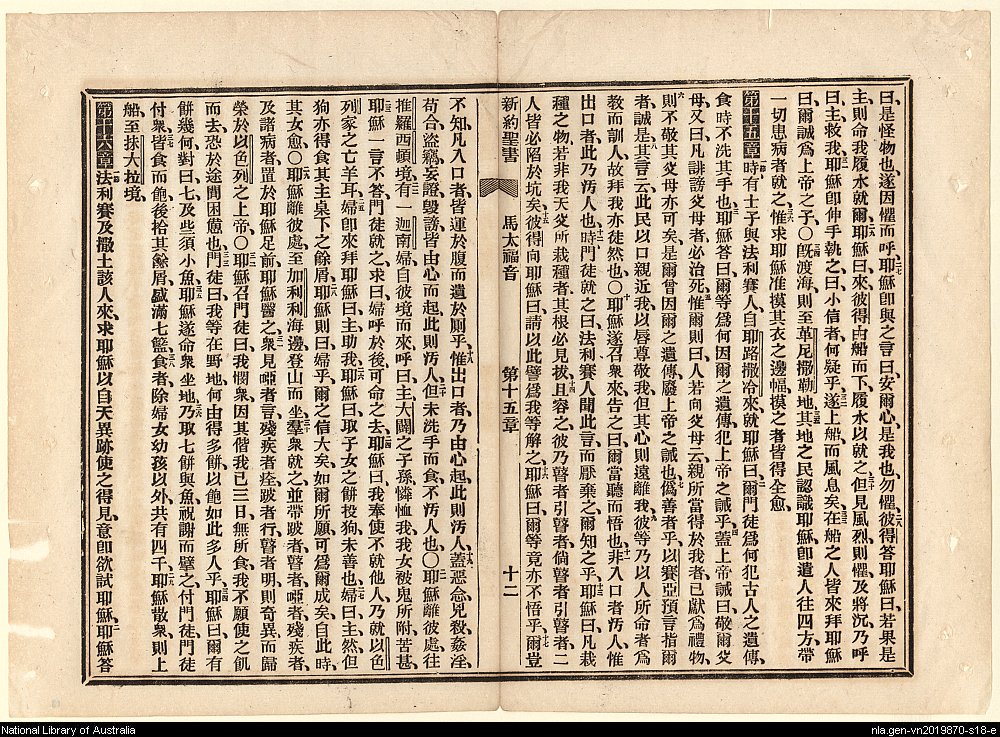 曰、是怪物也、遂因懼而呼、耶穌卽與之言曰、安爾心、是我也、勿懼、彼得答耶穌曰、若果是
主、則命我履水就爾、耶穌曰、來、彼得由船而下、履水以就之、但見風烈則懼、及將沉、乃呼
曰、主、救我、耶穌卽伸手執之、曰、小信者、何疑乎、遂上船而風息矣、在船之人皆來拜耶穌
曰、爾誠爲上帝之子、〇旣渡海、則至革尼撒勒地、其地之民認識耶穌、卽遣人往四方、帶
一切患病者就之、惟求耶穌准摸其衣之邊幅、摸之者皆得全愈、
第十五章 時有士子與法利賽人、自耶路撒冷來就耶穌曰、爾門徒爲何犯古人之遺傳、
食時不洗其手也、耶穌答曰、爾等爲何因爾之遺傳、犯上帝之誡乎、蓋上帝誡曰、敬爾父
母、又曰、凡誹謗父母者必治死、惟爾則曰、人若向父母云、親所當得於我者、已獻爲禮物、
則不敬其父母亦可矣、是爾曾因爾之遺傳、廢上帝之誡也、僞善者乎、以賽亞預言指爾
者、誠是、其言云、此民以口親近我、以唇尊敬我、但其心則遠離我、彼等乃以人所命者爲
教而訓人、故拜我亦徒然也、〇耶穌遂召衆來、告之曰、爾當聽而悟也、非入口者汚人、惟
出口者、此乃汚人也、時門徒就之曰、法利賽人聞此言而厭棄之、爾知之乎、耶穌曰、凡栽
種之物、若非我天父所栽種者、其根必見拔、且容之、彼乃瞽者引瞽者、倘瞽者引瞽者、二
人皆必陷於坑矣、彼得向耶穌曰、請以此譬爲我等解之、耶穌曰、爾等竟亦不悟乎、爾豈
新約聖書 馬太福音 第十五章 十二
不知凡入口者、皆運於腹而遺於厠乎、惟出口者、乃由心起、此則汚人、蓋惡念、兇殺、姦淫、
苟合、盜竊、妄證、毀謗、皆由心而起、此則汚人、但未洗手而食、不汚人也、〇耶穌離彼處、往
推羅西頓境、有一迦南婦、自彼境而來、呼曰、主、大闢之子孫、憐恤我、我女被鬼所附苦甚、
耶穌一言不答、門徒就之、求曰、婦呼於後、可命之去、耶穌曰、我奉使不就他人、乃就以色
列家之亡羊耳、婦卽來拜耶穌曰、主、助我、耶穌曰、取子女之餅投狗、未善也、婦曰、主、然、但
狗亦得食其主桌下之餘屑、耶穌則曰、婦乎、爾之信大矣、如爾所願、可爲爾成矣、自此時
其女愈、〇耶穌離彼處、至加利利海邊、登山而坐、羣衆就之、並帶跛者、瞽者、啞者、殘疾者、
及諸病者、置於耶穌足前、耶穌醫之、衆見啞者言、殘疾者痊、跛者行、瞽者明、則奇異而歸
榮於以色列之上帝、〇耶穌召門徒曰、我憫衆、因其偕我已三日、無所食、我不願使之飢
而去、恐於途間困憊也、門徒曰、我等在野地、何由得多餅、以飽如此多人乎、耶穌曰、爾有
餅幾何、對曰、七、及些須小魚、耶穌遂命衆坐地、乃取七餅與魚、祝謝而擘之、付門徒、門徒
付衆、皆食而飽、後拾其餘屑、盛滿七籃、食者、除婦女幼孩以外、共有四千、耶穌散衆、則上
船、至抹大拉境、
第十六章 法利賽及撒土該人來、求耶穌以自天異跡使之得見、意卽欲試耶穌、耶穌答
National Library of Australia
nla.gen-vn2019870-s18-e